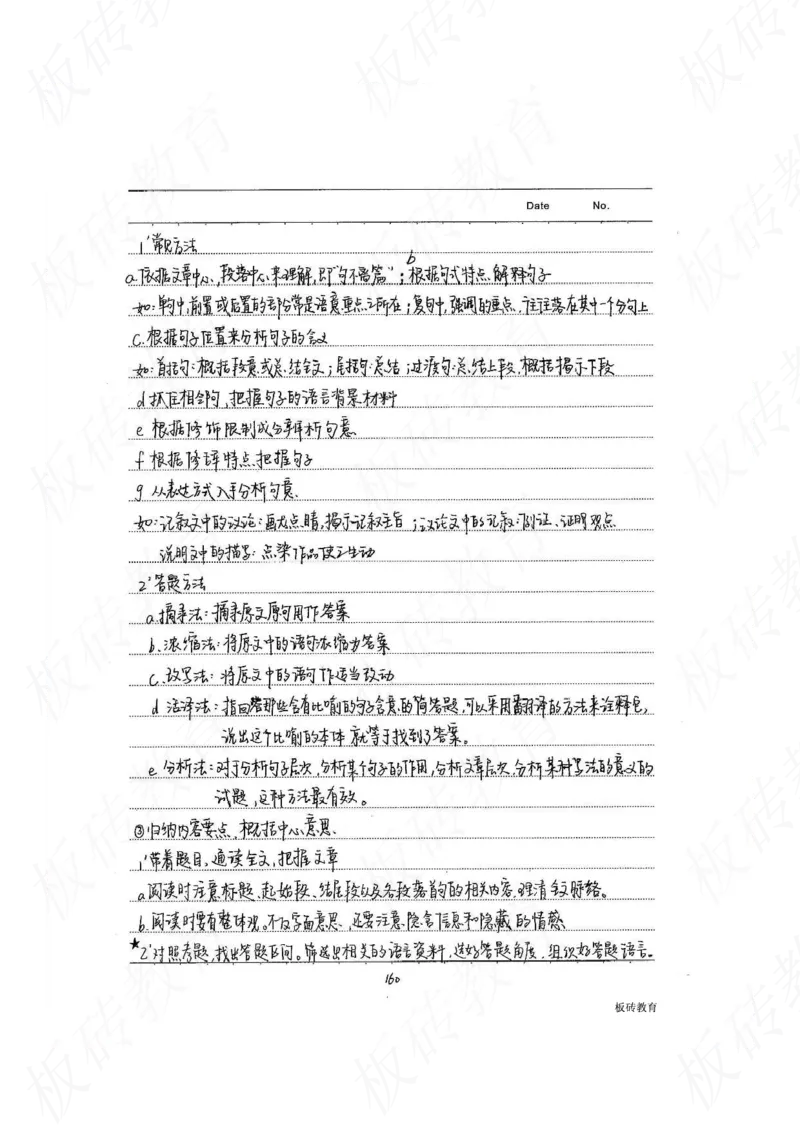 Date No.
1' 常见方法
a.依据文章中心,段落中心来理解,即"句不离篇";b根据句式特点解释句子
如:单句中,前置或后置的部分常是语意重点之所在;复句中,强调的重点,往往落在其中一个分句上
c.根据句子位置来分析句子的含义
如:首括句:概括段意或总结全文;尾括句:总结;过渡句:总结上段,概括揭示下段
d 抓住相邻句,把握句子的语言背景材料
e 根据修饰限制成分弄析句意
f 根据修辞特点把握句子
g 从表达方式入手分析句意
如:记叙文中的议论:画龙点睛,揭示记叙主旨;议论文中的记叙:例证、证明观点
说明文中的描写:点染作品使之生动
2' 答题方法
a.摘录法:摘录原文原句用作答案
b.浓缩法:将原文中的语句浓缩为答案
c.改写法:将原文中的语句作适当改动
d 活译法:指回答那些含有比喻的句子含意的简答题,可以采用翻译的方法来诠释它,
说出这个比喻的本体就等于找到了答案。
e 分析法:对于分析句子层次,分析某个句子的作用,分析文章层次,分析某种写法的意义的
试题,这种方法最有效。
③归纳内容要点,概括中心意思
1' 带着题目,通读全文,把握文章
a.阅读时注意标题、起始段、结尾段以及各段落首句的相关内容,理清全文脉络。
b.阅读时要有整体观。不仅字面意思、还要注意隐含信息和隐藏的情感
★2' 对照考题,找出答题区间。筛选出相关的语言资料,选好答题角度,组织好答题语言。
160
板砖教育